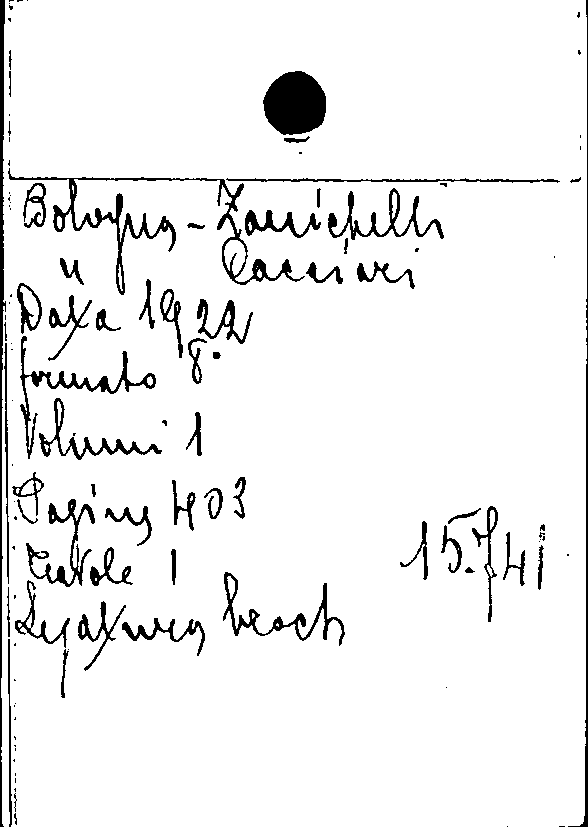 Bologna - Zanichelli
" Cacciari
Data 1922
formato 8°
Volumi 1
Pagine 403
Tavole 1
Legatura broch
15.7.41